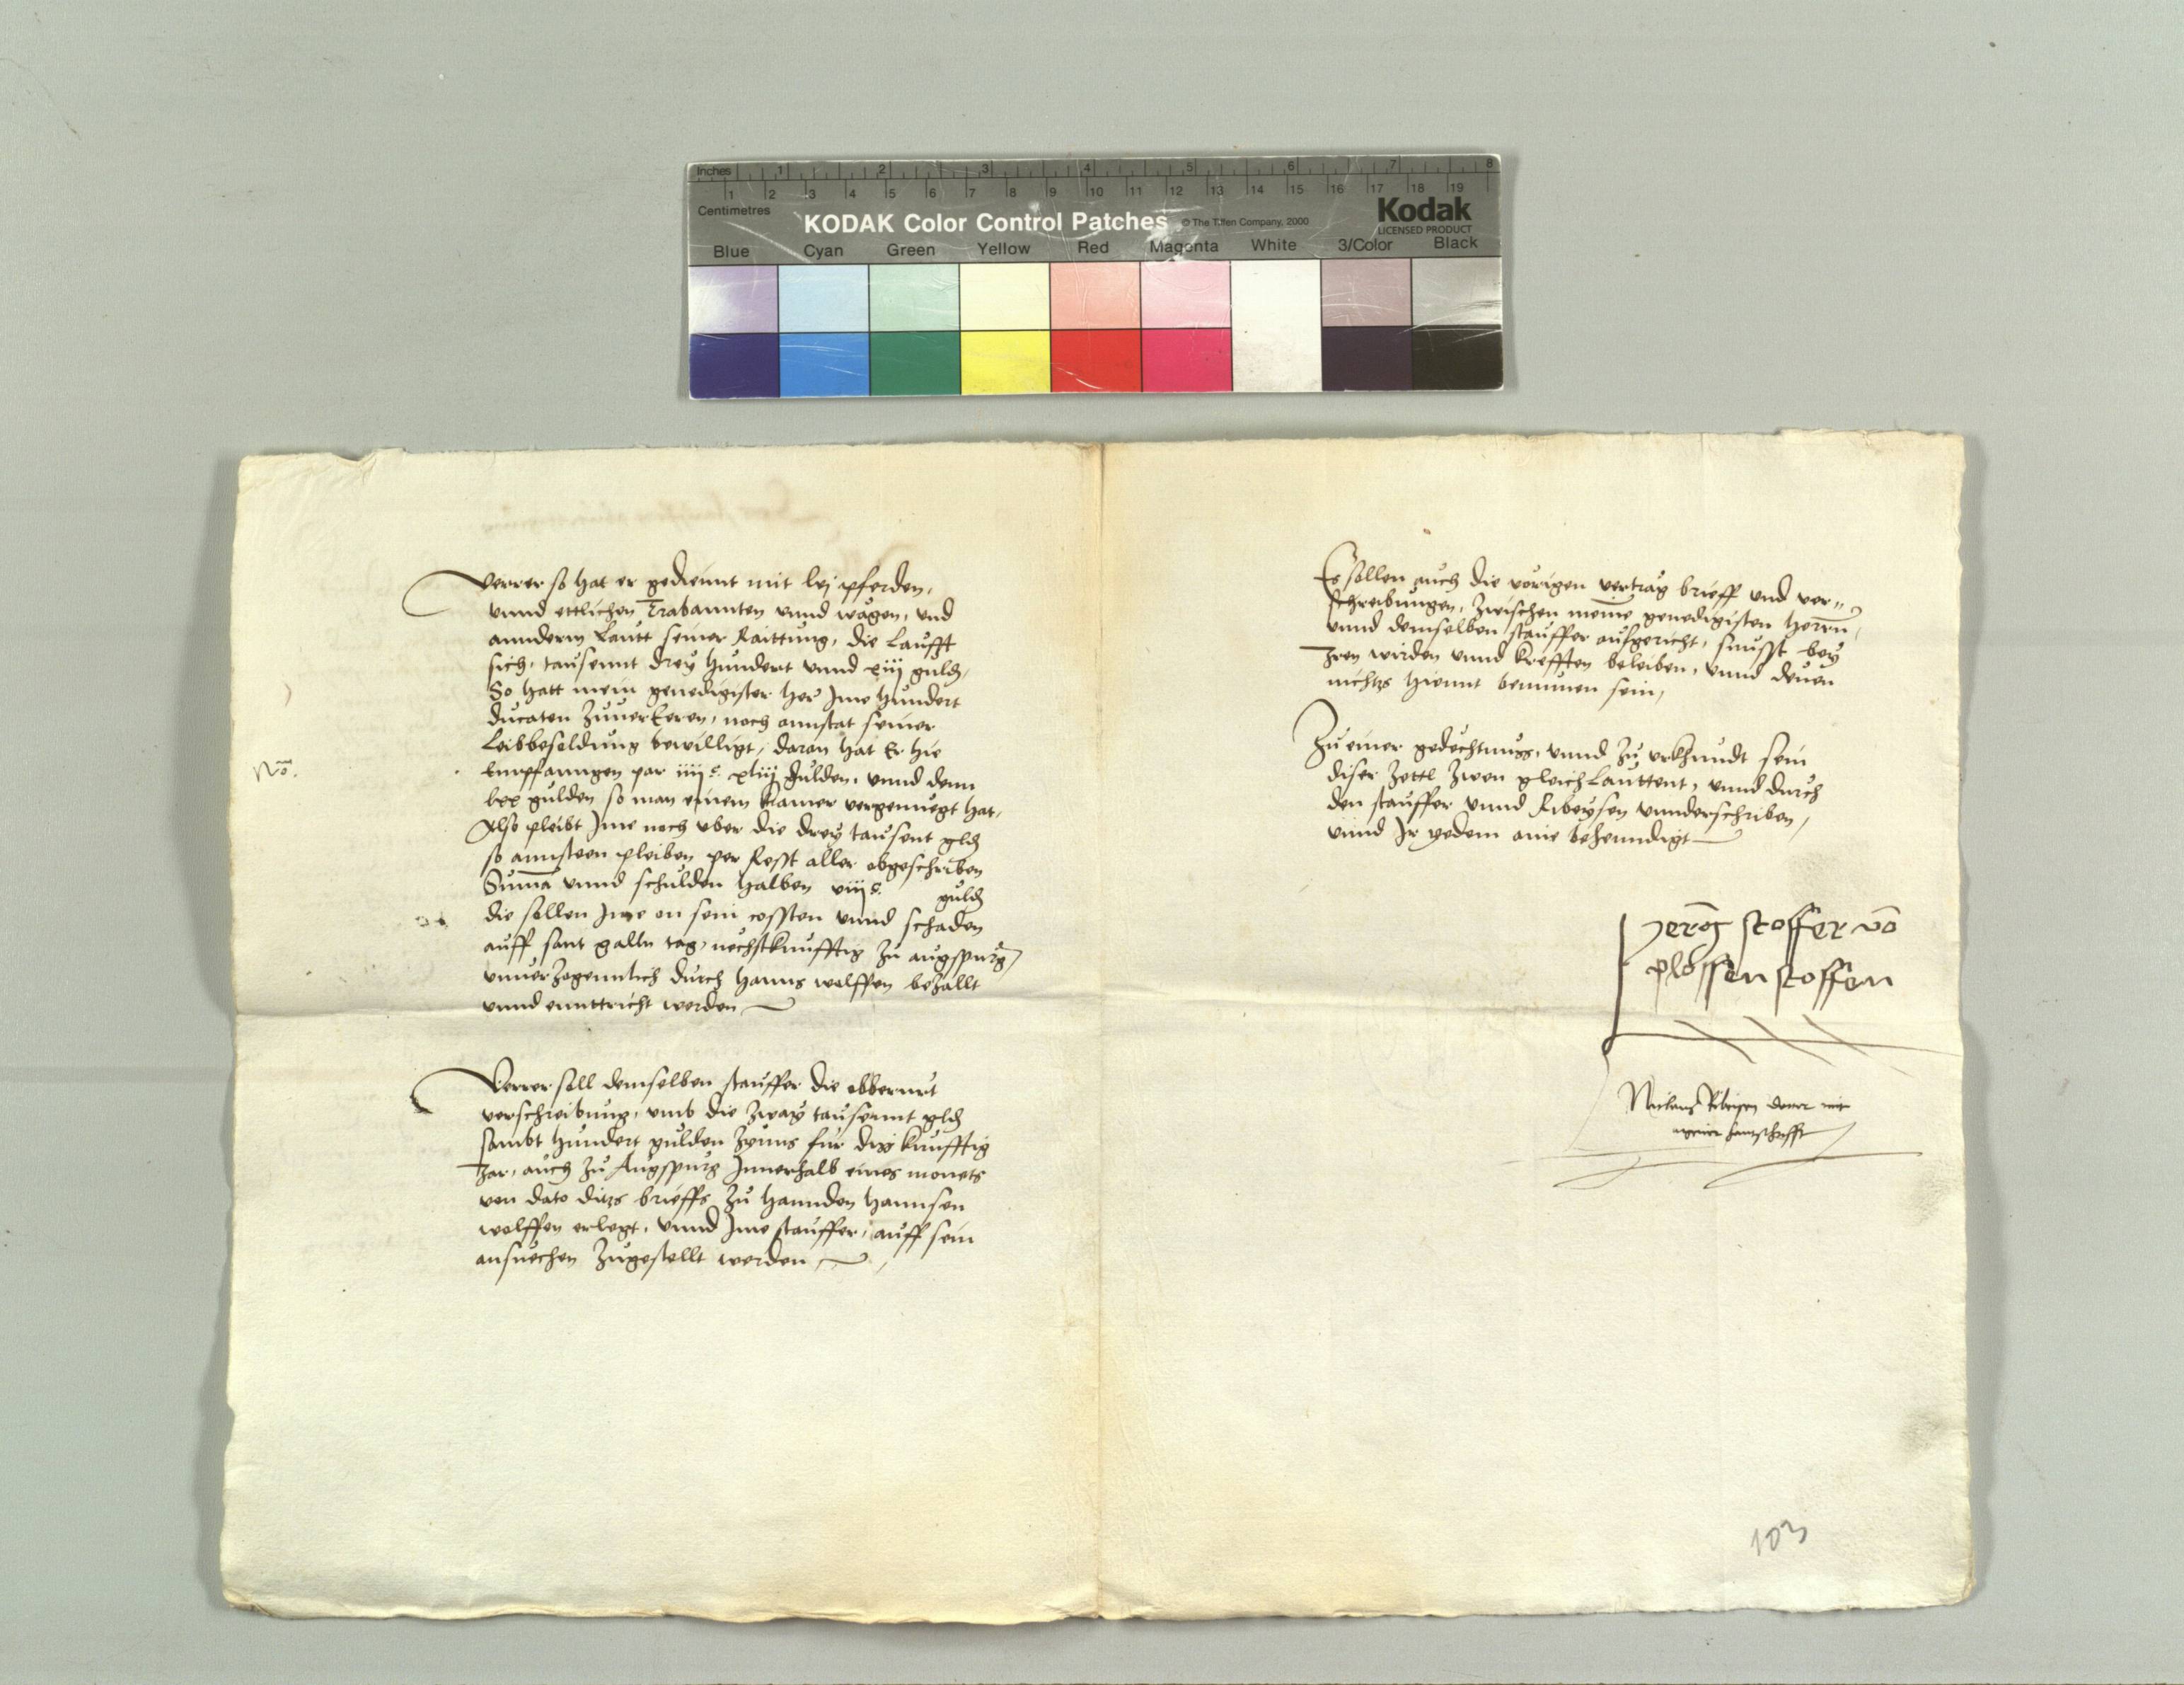 Inches 1 2 3 4 5 6 7 8
1 2 3 4 5 6 7 8 9 10 11 12 13 14 15 16 17 18 19
Centimetres
KODAK Color Control Patches © The Tiffen Company, 2000
Kodak
LICENSED PRODUCT
Blue Cyan Green Yellow Red Magenta White 3/Color Black
Verrer so hat er gediennt mit lvj pferden,
vnnd ettlichen Trabannten vnnd wägen, vnd
annderm Lautt seiner Raittung, die Laufft
sich, tausennt drey hundert vnnd xiij guld,
So hatt mein genedigister her Ime hundert
ducaten zuuerkeren, noch annstat seiner
Leibbesoldung bewilligt, daran hat Er hie
Empfanngen par iiijc xliij gulden, vnnd denn
lxx gulden so man einem kramer vergenuegt hat,
Also pleibt Ime noch vber die drey tausent gld
so annsteen pleiben per Resst aller obgeschriben
Suma vnnd schulden halben viijc guld
die sollen Ime on sein cossten vnnd schaden
auff sant galln tag, nechstkunfftig zu augspurg,
vnuerzogennlich durch Hanns wolffen bezallt
vnnd enntricht werden
No.
Verrer soll demselben stauffer die obberurt
verschreibung, vmb die zway tausennt gld
sambt hundert gulden zynns fur diss kunfftig
Jar, auch zu Augspurg Innerhalb eines monets
von dato ditzs brieffs zu hannden hannsen
wolffen erlegt, vnnd Ime stauffer, auff sein
ansuechen zugestellt werden
Es sollen auch die vorigen vertrag brieff vnd ver„
schreibungen, zwischen meinem genedigisten herrn,
vnnd demselben stauffer aufgericht, sunsst bey
Jren wirden vnnd krefften beleiben, vnnd denen
nichtzs hiemit benumen sein,
Zu einer gedechtnuss, vnnd zu vrkhundt sein
diser zettl zwen gleich Lauttent, vnnd durch
den stauffer vnnd Ribeysen vnnderschriben,
vnnd Ir yedem ainer behenndigt
Jerog stoffer vo
plossen stoffen
Niclaus Ribeisen
meiner hantschrifft
103